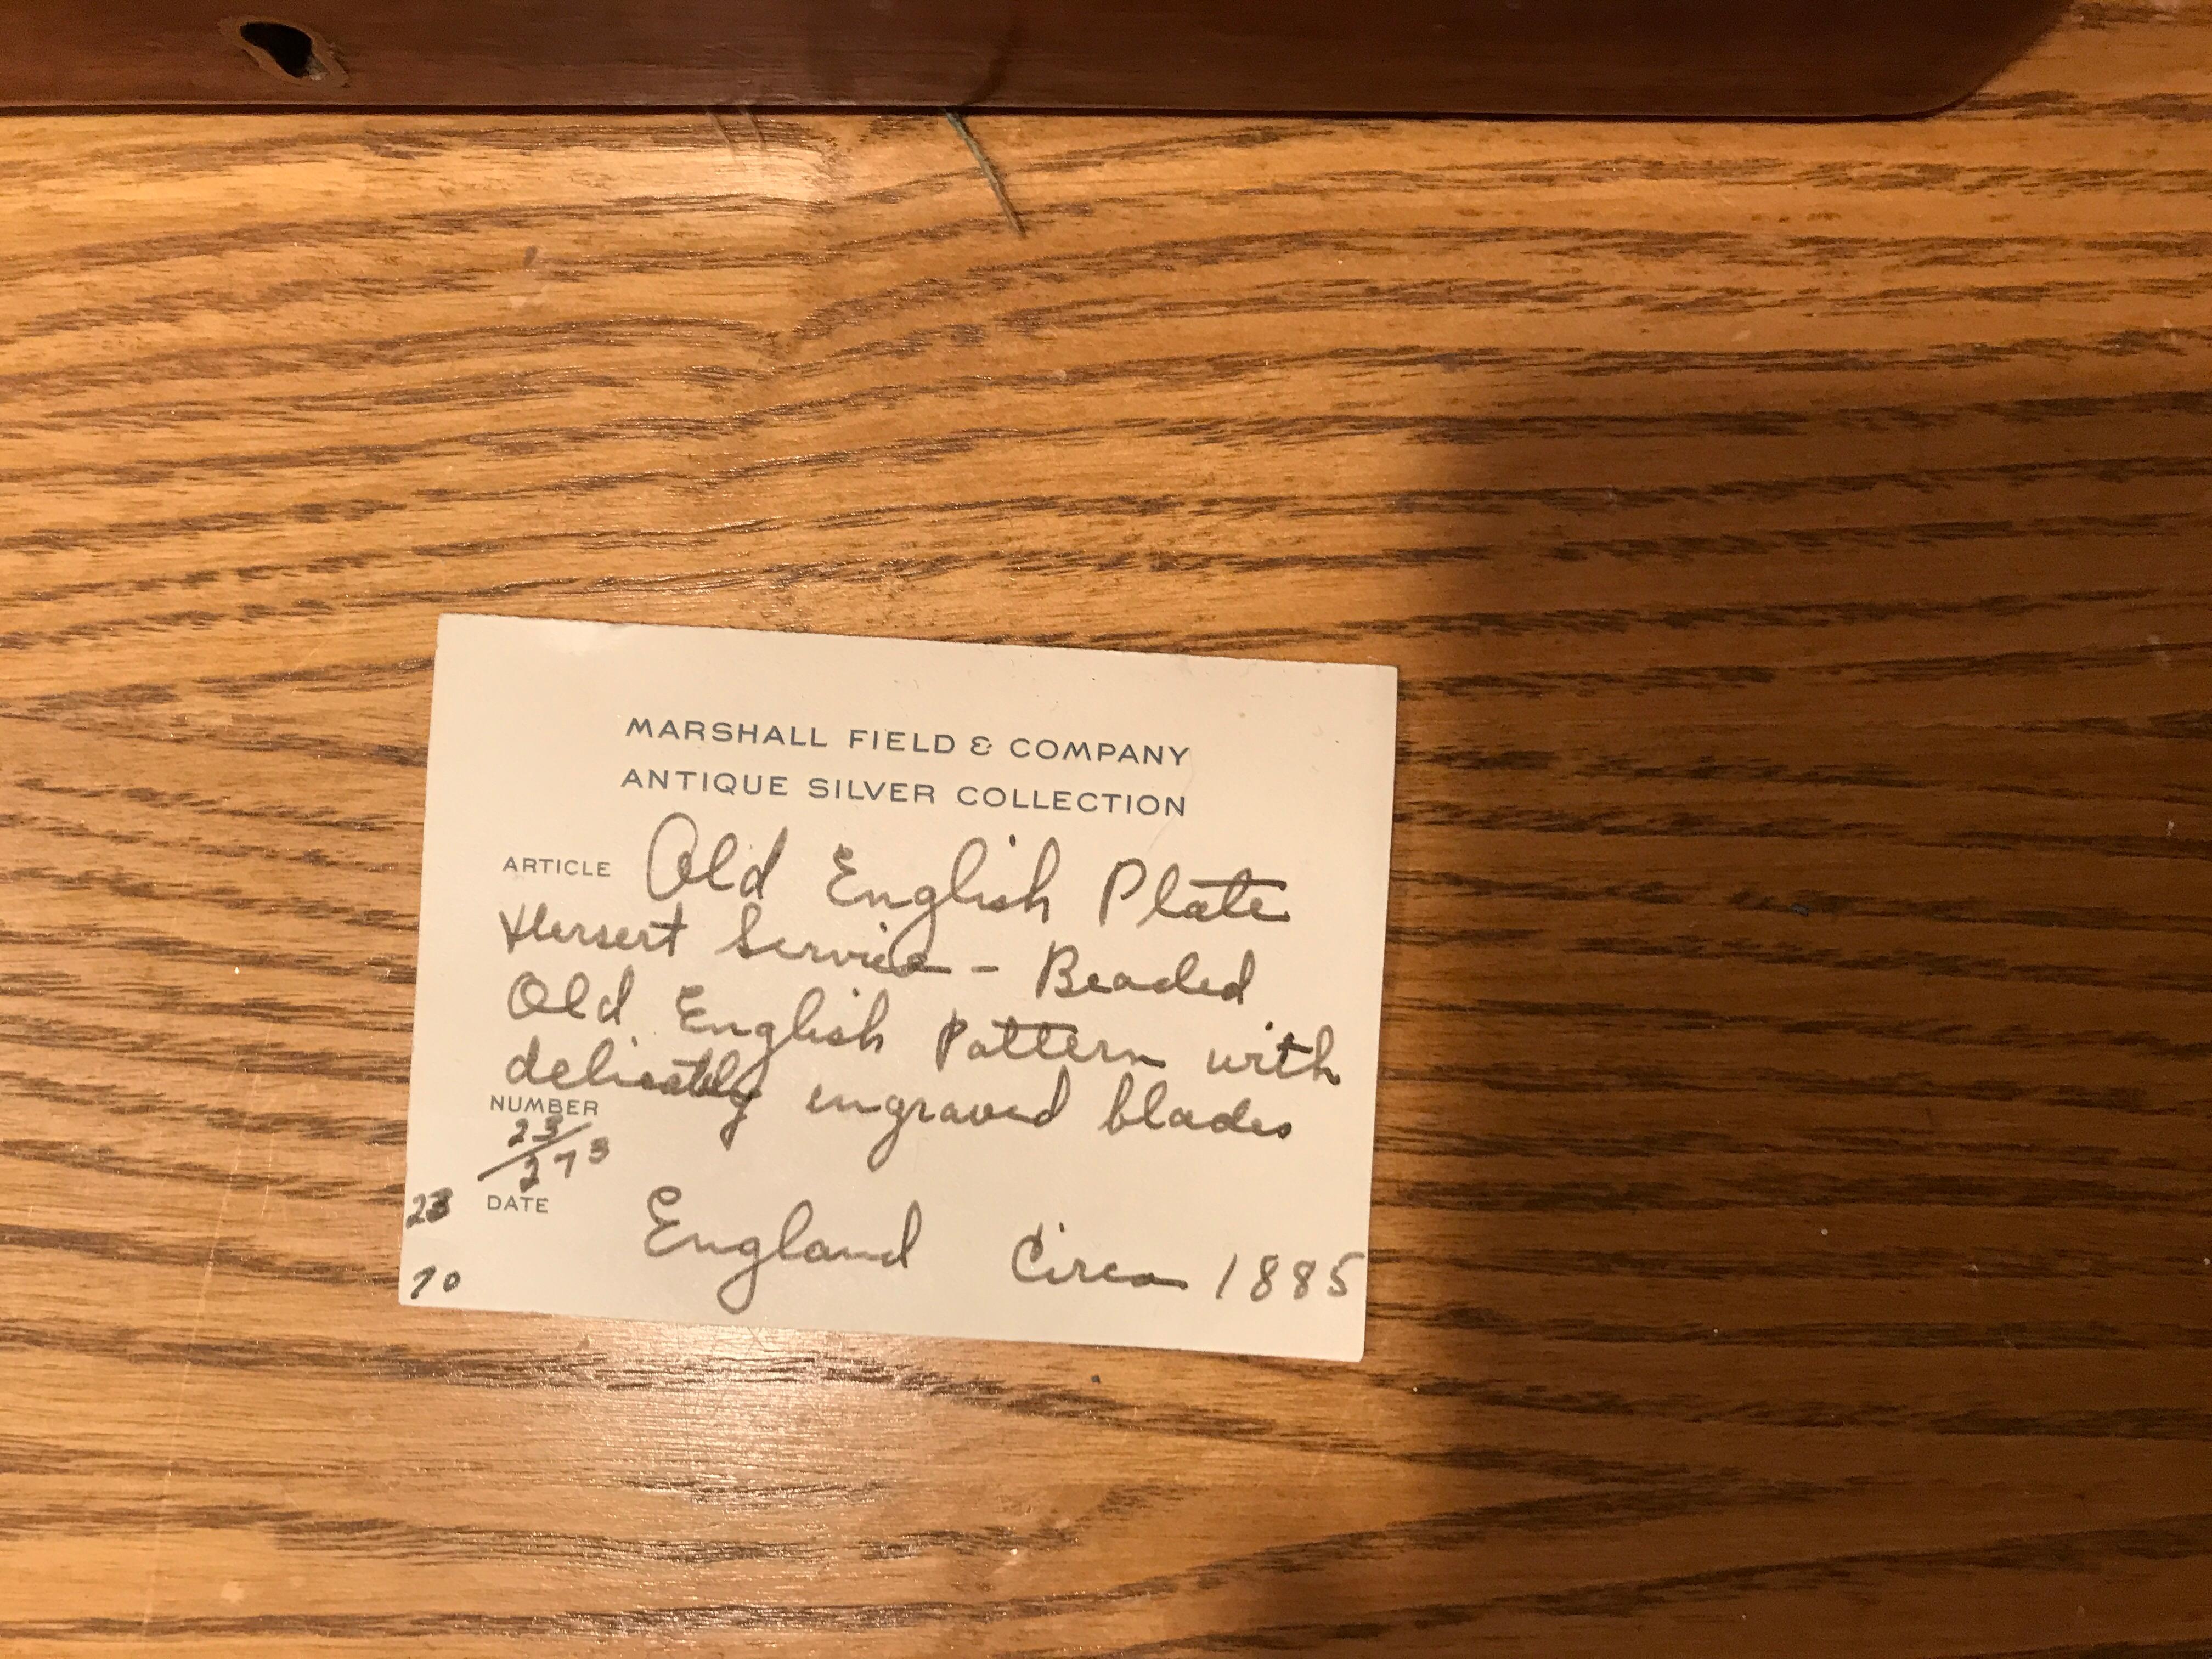 MARSHALL FIELD & COMPANY
ANTIQUE SILVER COLLECTION
ARTICLE Old English Plate
Service - Beaded
Old English Pattern with
delicately engraved blades
NUMBER
23/
273
DATE
23
England Circa 1885
70